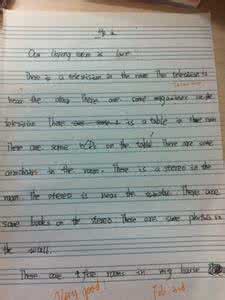 Our living room is
There is a television in the room. This television is
near the door. There are some magazines on the
television. There is a table in the room.
There are some VCDs on the table. There are some
in the room. There is a stereo in the
room. The stereo is near the window. There are
some books on the stereo. There are some photos on
the wall.
There are five rooms in my house
Very good